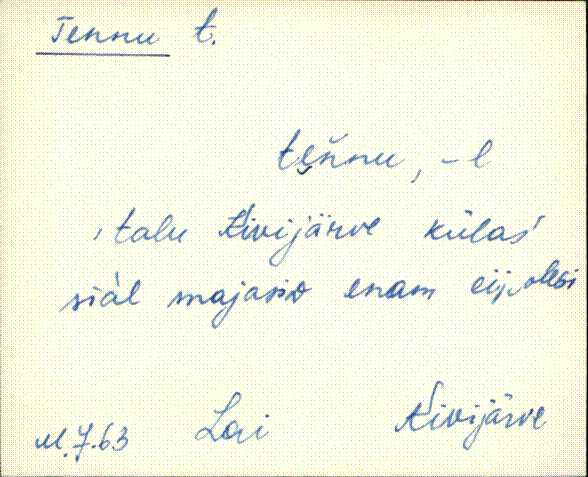 Tennu t.
tennu, -l
'talu Kivijärve külas'
siàl majasid enam eij olesi
M.7.63 Lai Kivijärve